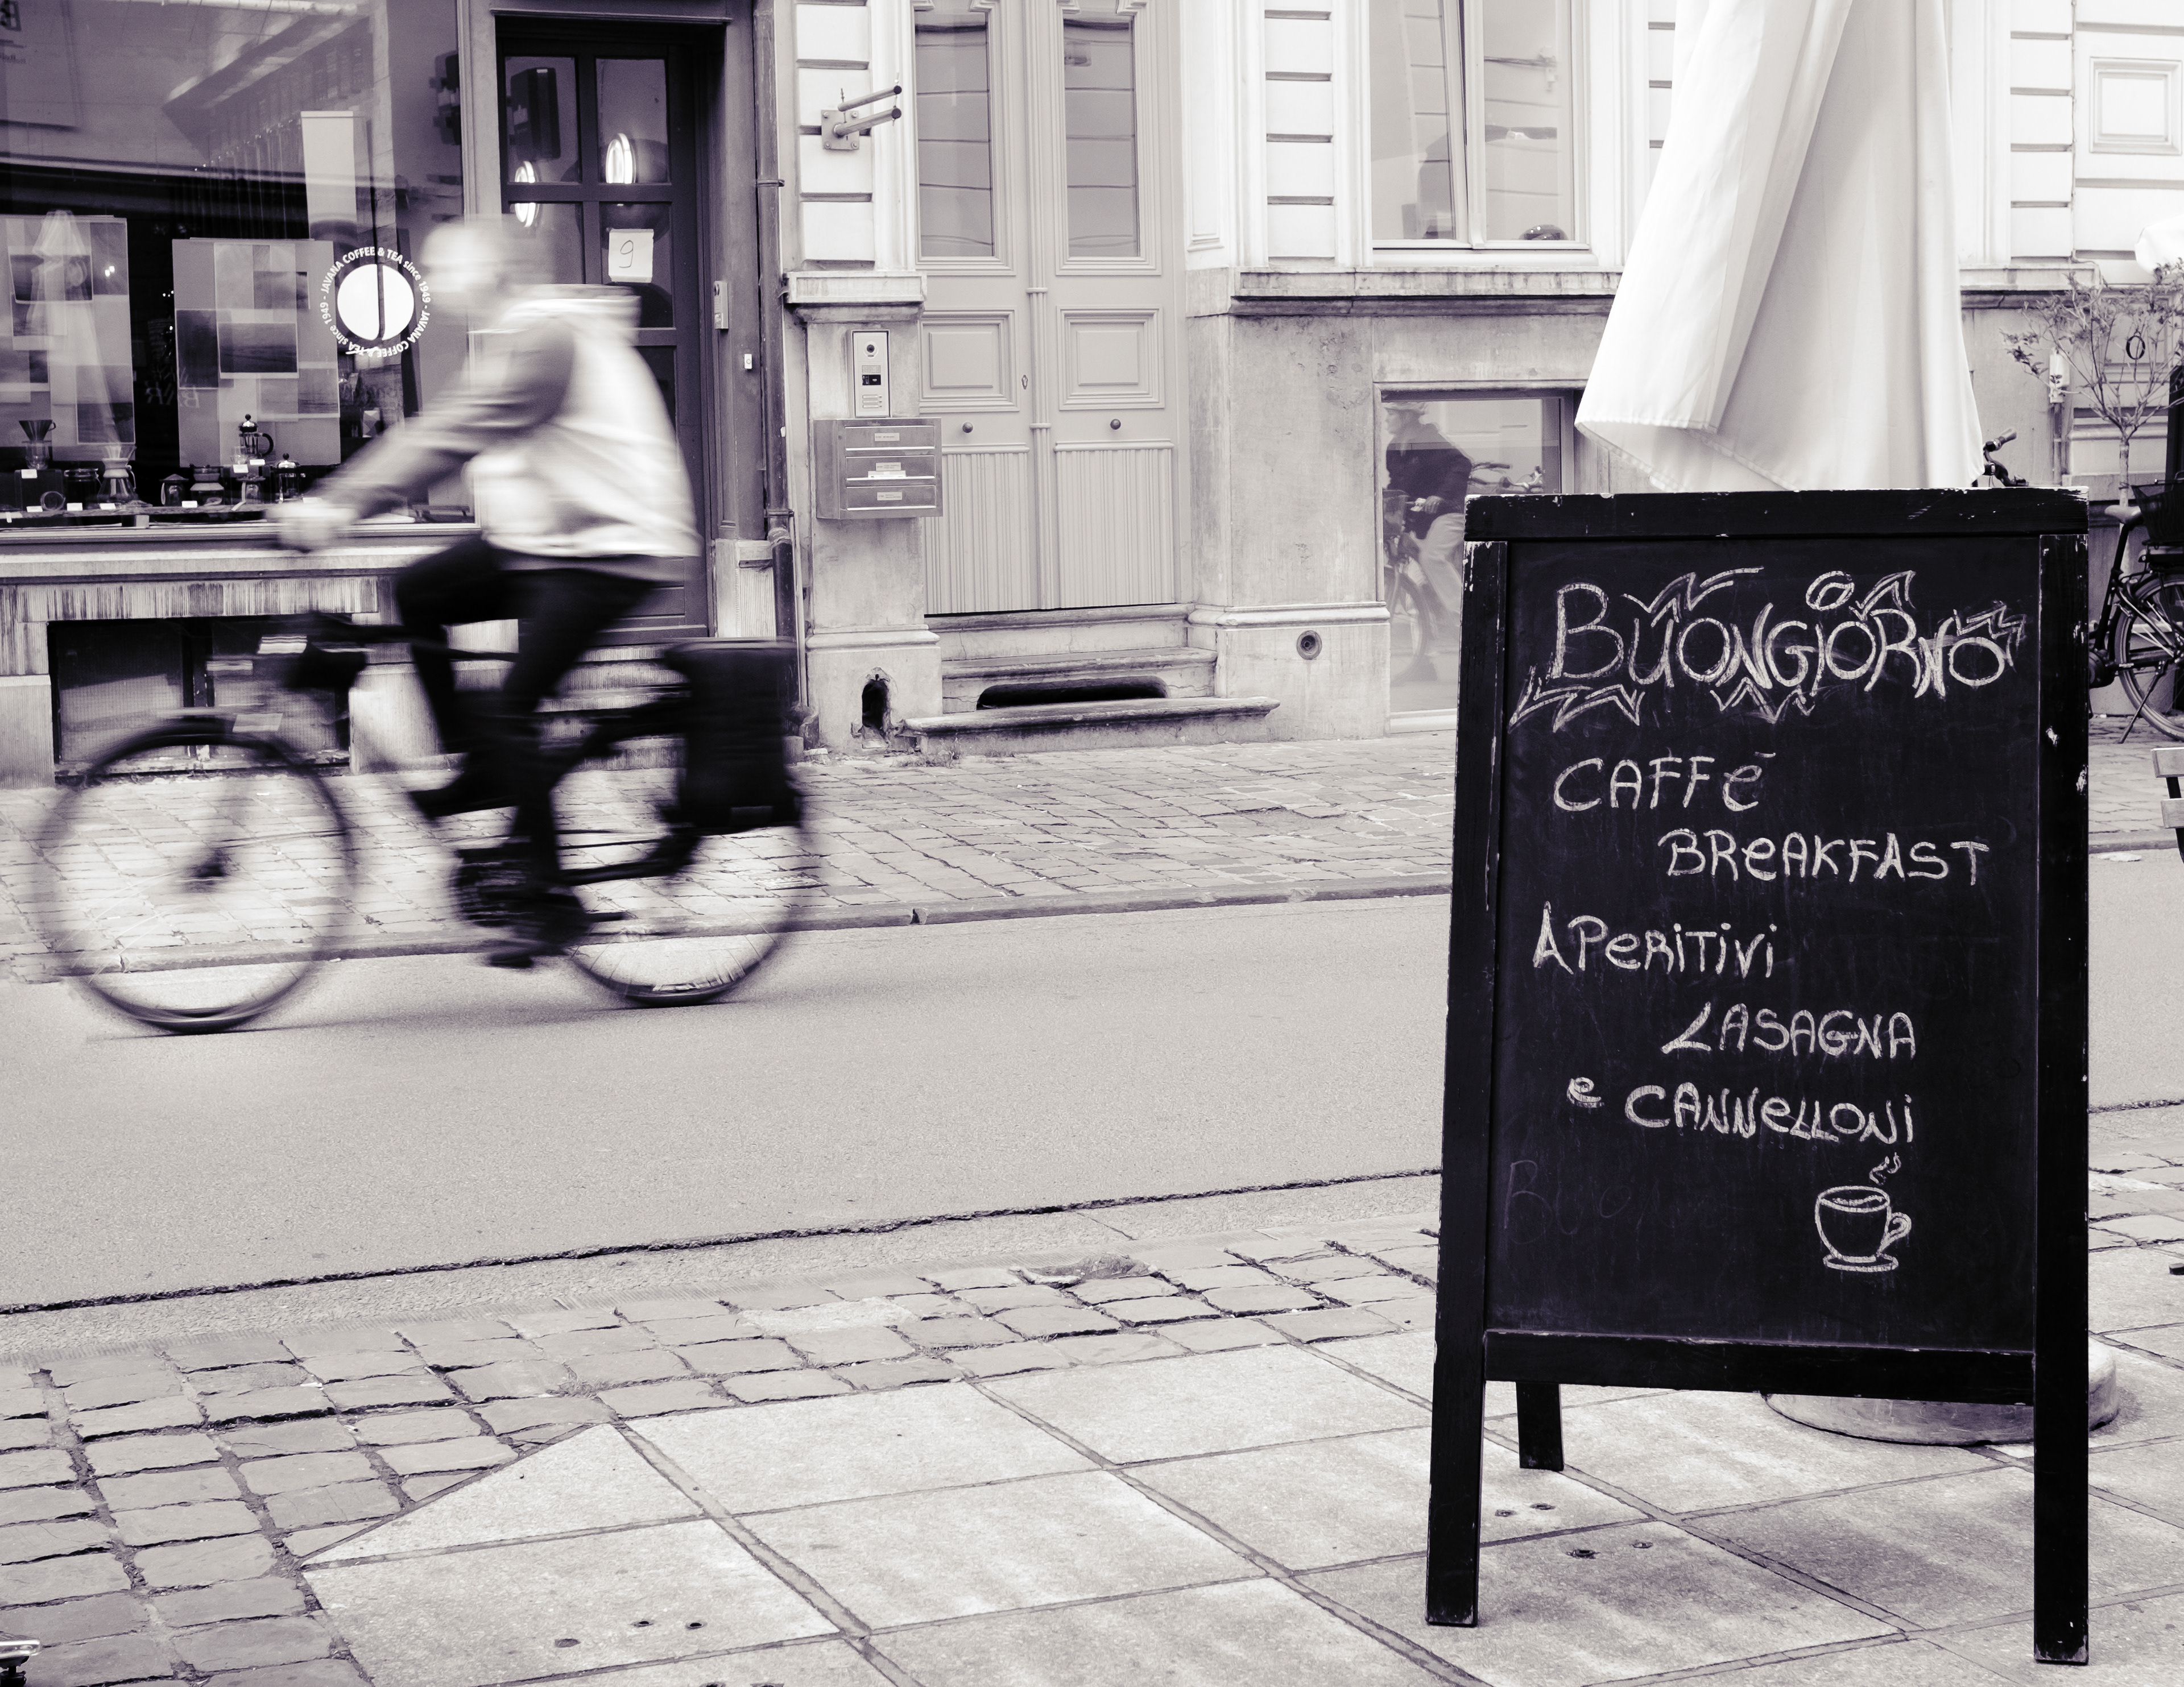 JAVANA COFFEE & TEA since 1949 - JAVANA COFFEE & TEA since 1949 -
9
BUONGIORNO
CAFFē
BReAKFAST
APeRiTiVi
LASAGNA
e CANNeLLONi
Buo